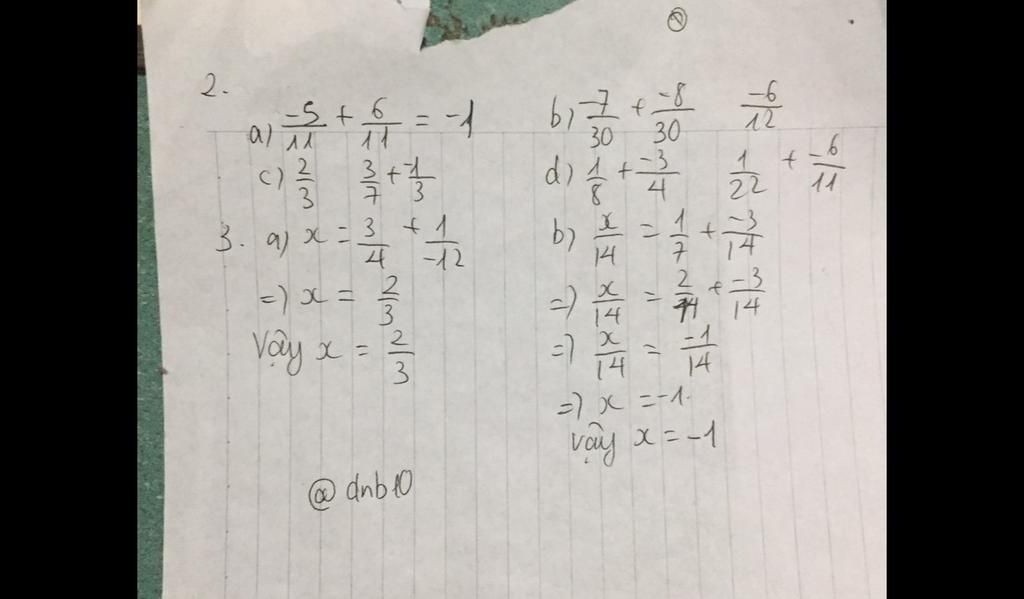 2.
a) -5/11 + 6/11 = -1
b) -7/30 + -8/30 -6/12
c) 2/3 3/7 + -1/3
d) 1/8 + -3/4 1/22 + -6/11
3. a) x = 3/4 + 1/-12
=) x = 2/3
Vậy x = 2/3
b) x/14 = 1/7 + -3/14
=) x/14 = 2/14 + -3/14
=) x/14 = -1/14
=) x = -1.
Vậy x = -1
@dnb10